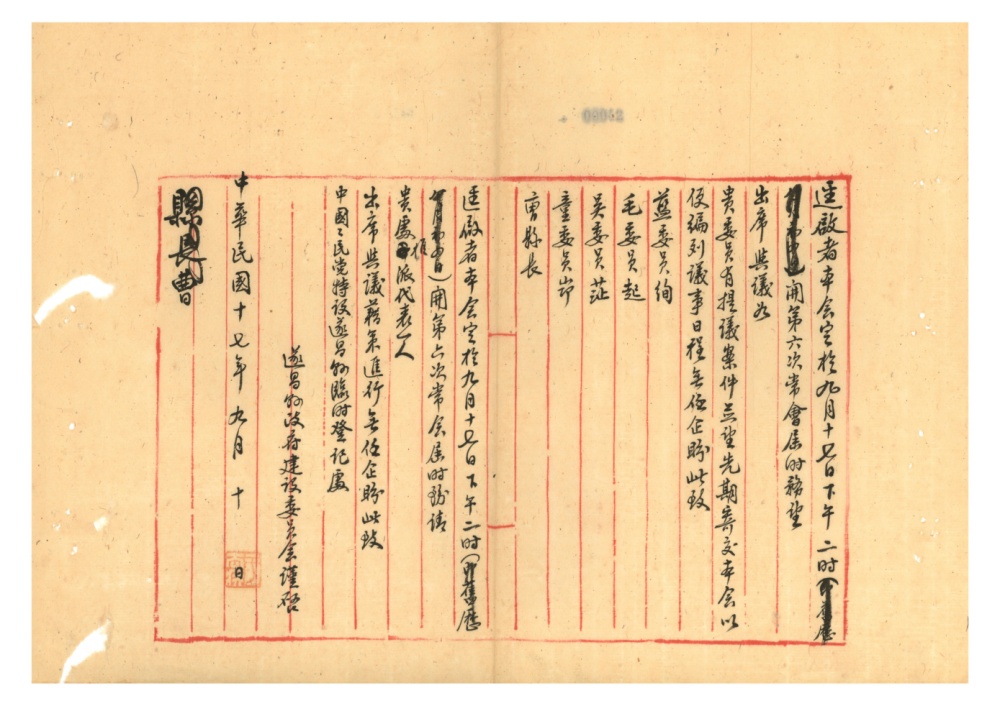 09042
逕啟者本会定於九月十七日下午二时(即舊歷
開第六次常會届时務望
出席與議如
貴委員有提議案件並望先期寄交本会以
便编列議事日程無任企盼此致
藍委員绚
毛委員起
吴委員茳
童委員峁
曹縣长
逕啟者本会定於九月十七日下午二时(即舊歷
)開第六次常会届时務請
貴處派代表一人
出席與議藉策進行無任企盼此致
中國国民党特設遂昌縣臨时登记處
遂昌縣政府建設委員会謹啓
中華民國十七年九月十日
縣長曹